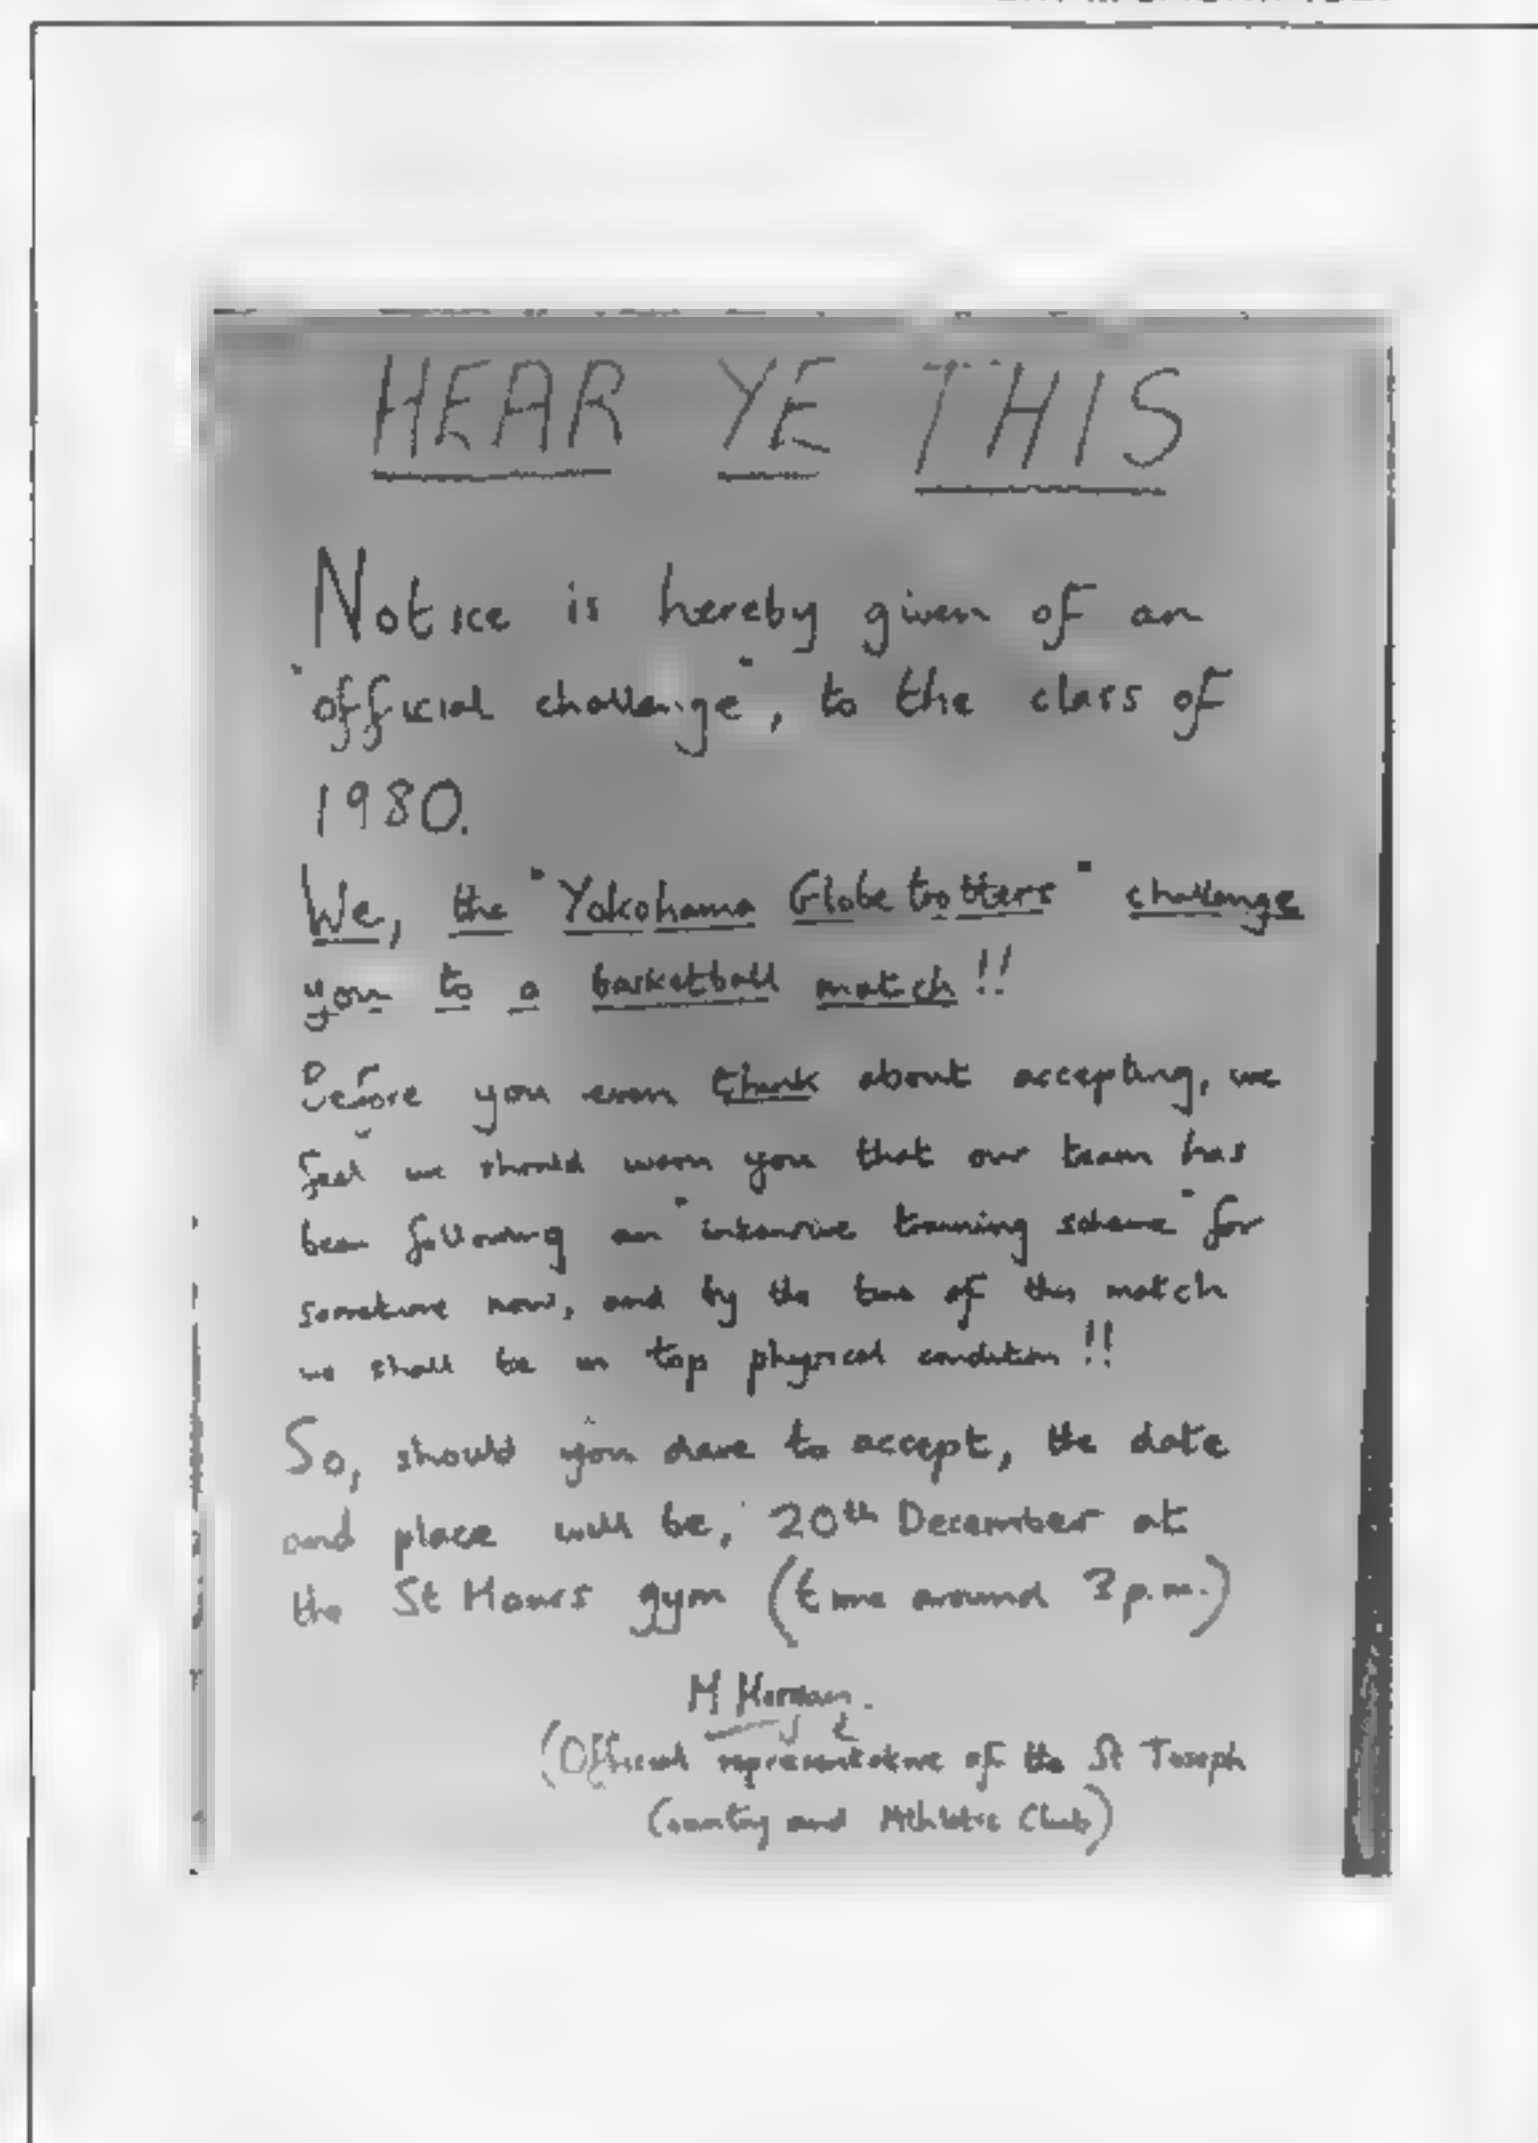 HEAR YE THIS
Notice is hereby given of an
"official challenge", to the class of
1980.
We, the "Yokohama Globetrotters" challenge
you to a basketball match!!
Before you even think about accepting, we
feel we should warn you that our team has
been following an "intensive training scheme" for
sometime now, and by the time of this match
we shall be in top physical condition!!
So, should you dare to accept, the date
and place will be, 20th December at
the St Maurs gym (time around 3 p.m.)
M Morgan.
(Official representative of the St Joseph
Country and Athletic Club)